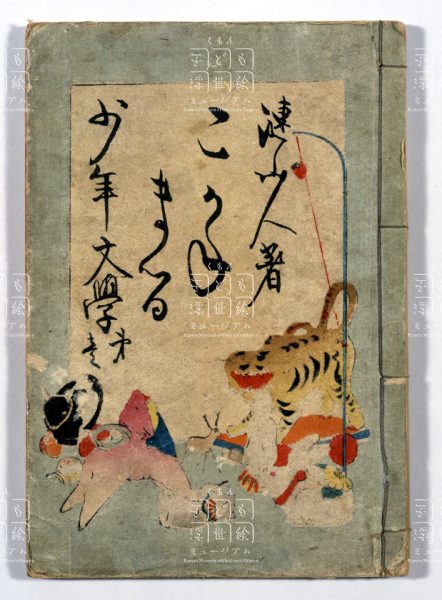 漣山人著
こがね
まる
少年文學第壱
くもん
子ども
浮世絵
ミュージアム
Kumon Museum of Children's Ukiyo-e